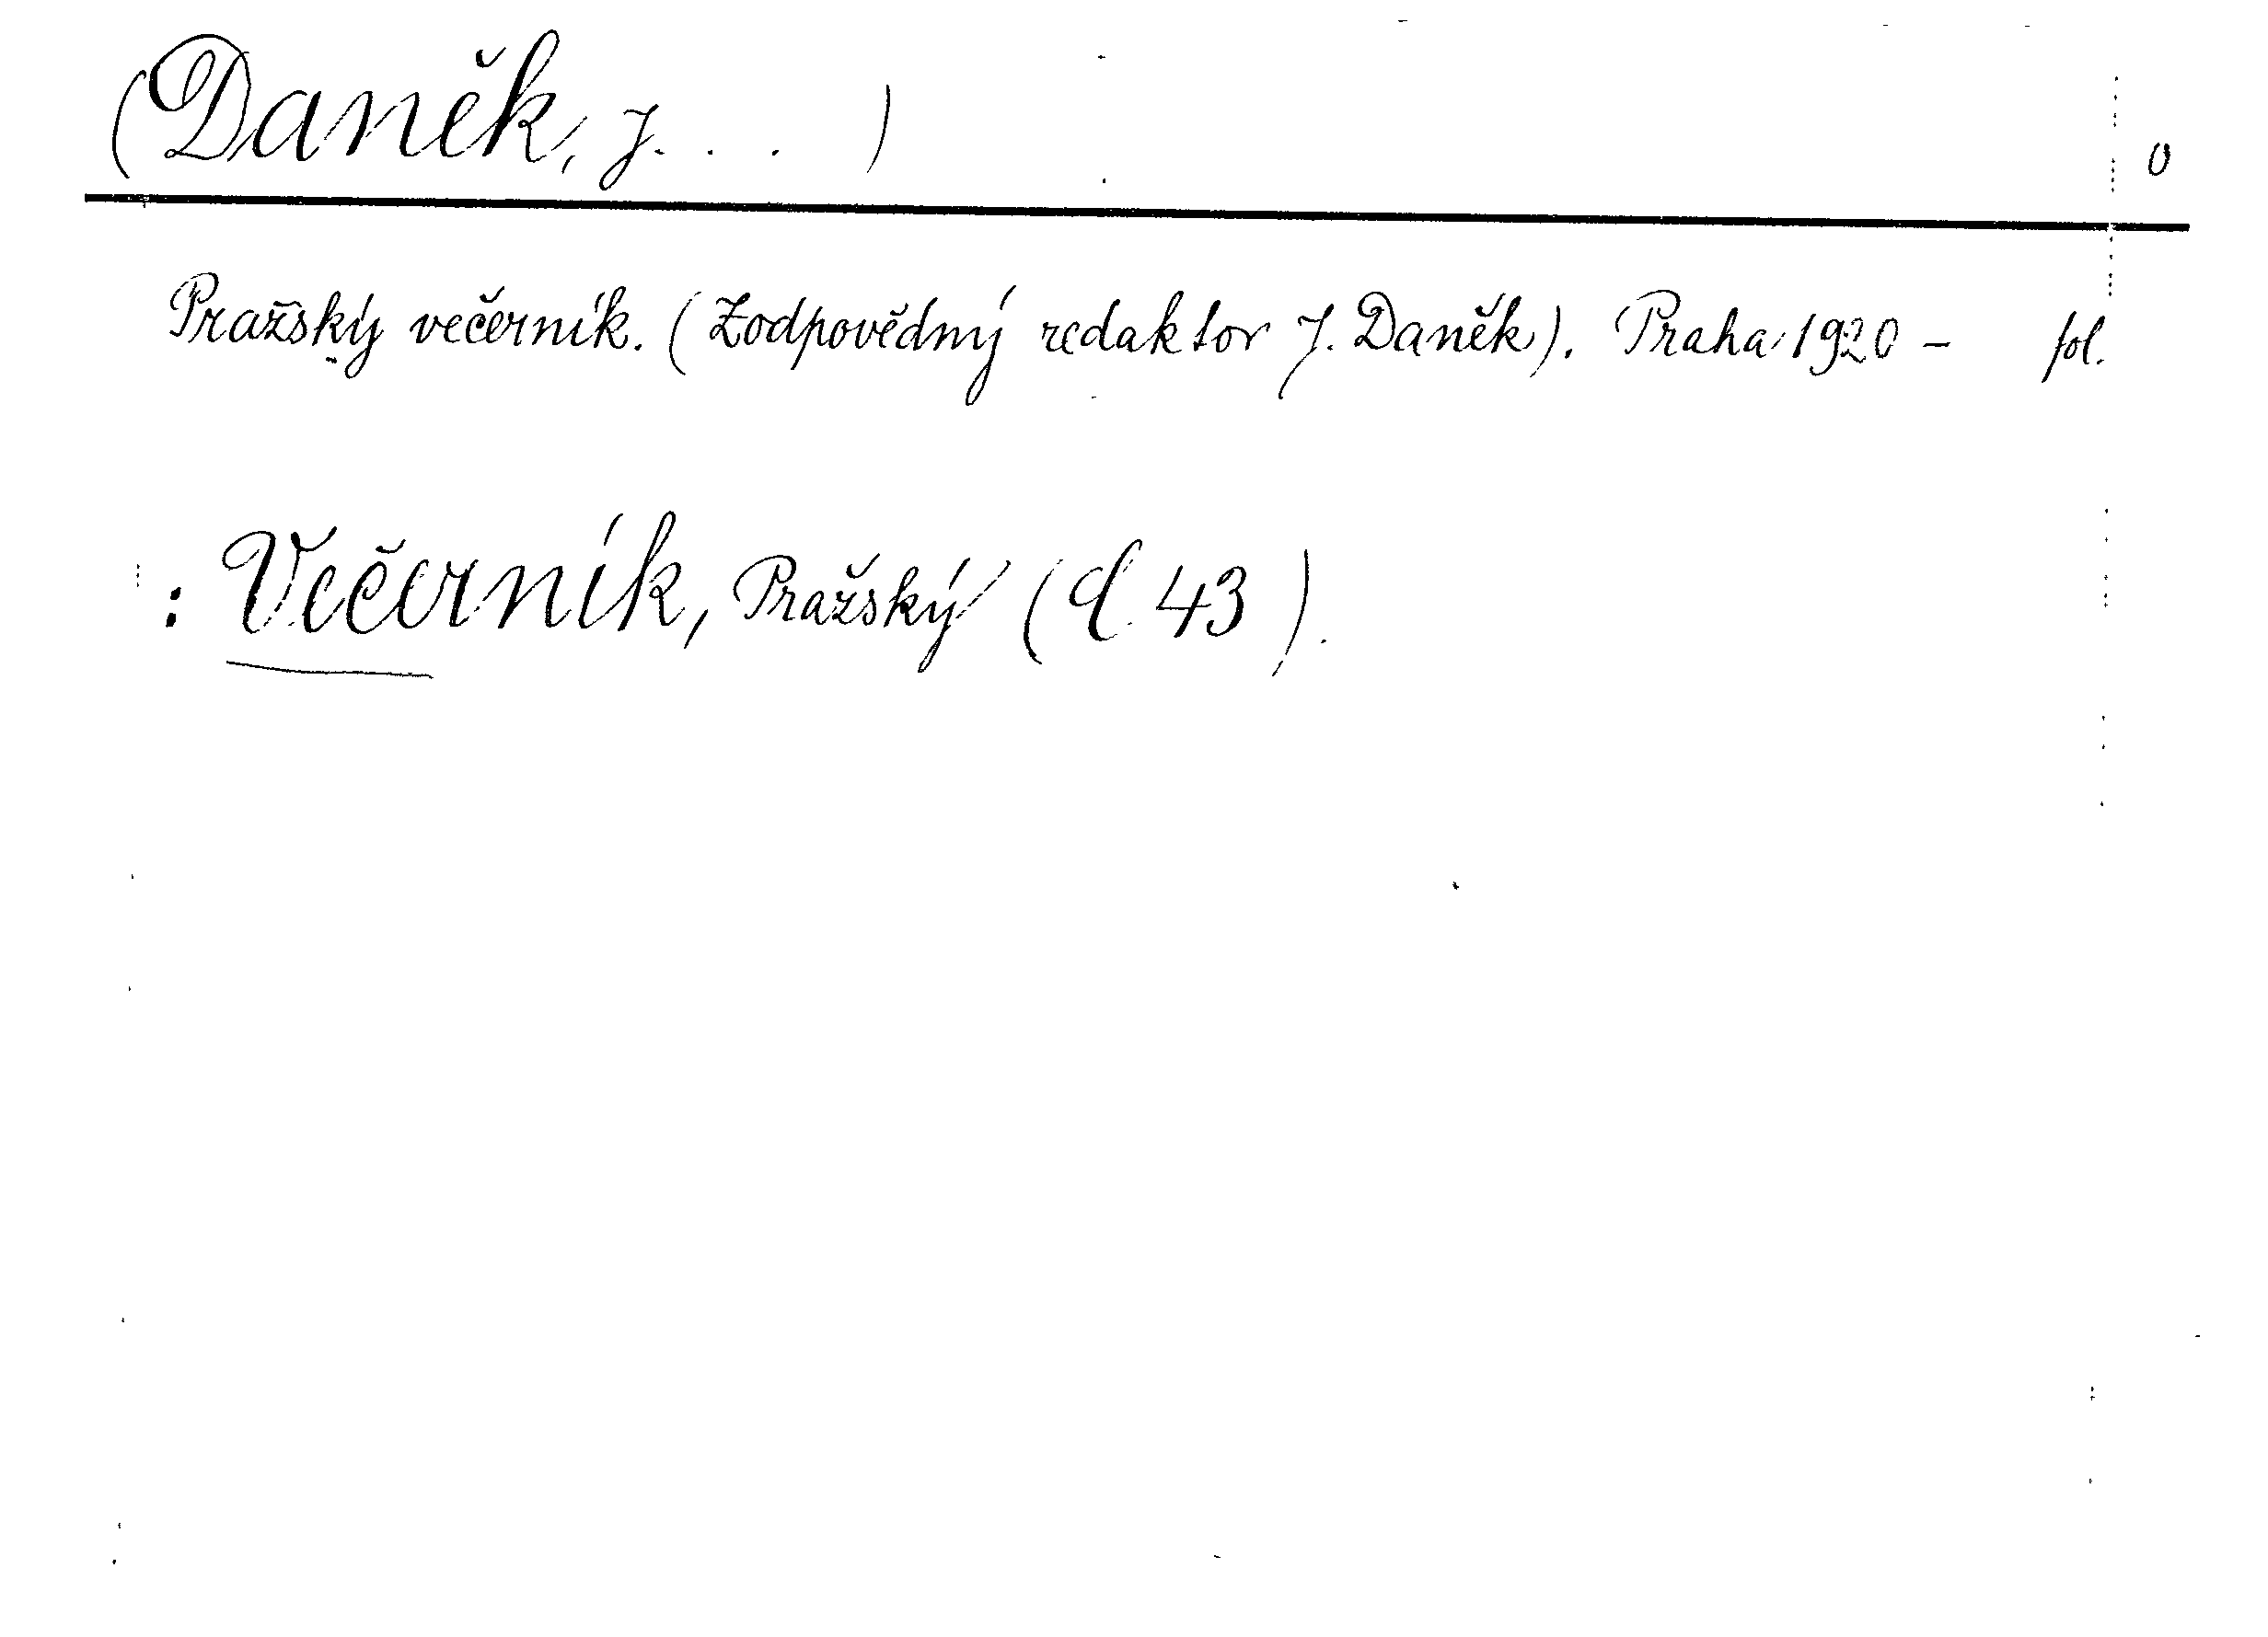 (Daněk, J. . . ) 0
Pražský večerník. (Zodpovědný redaktor J. Daněk). Praha 1920 – fol.
: Večerník, Pražský (d. 43).